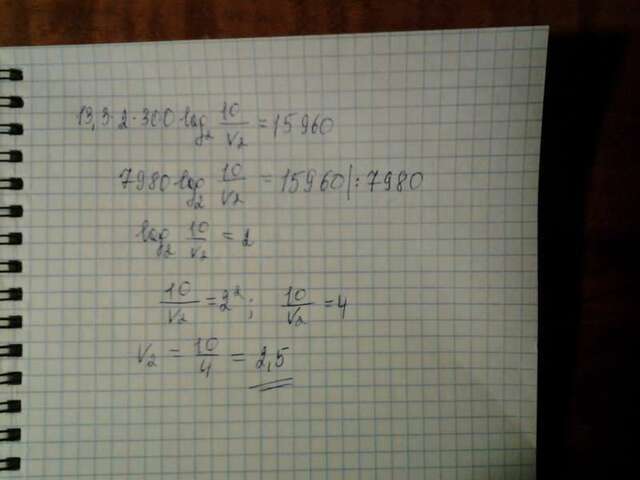 13,3·2·300 log₂ 10/V₂ = 15960
7980 log₂ 10/V₂ = 15960 |:7980
log₂ 10/V₂ = 2
10/V₂ = 2²; 10/V₂ = 4
V₂ = 10/4 = 2,5